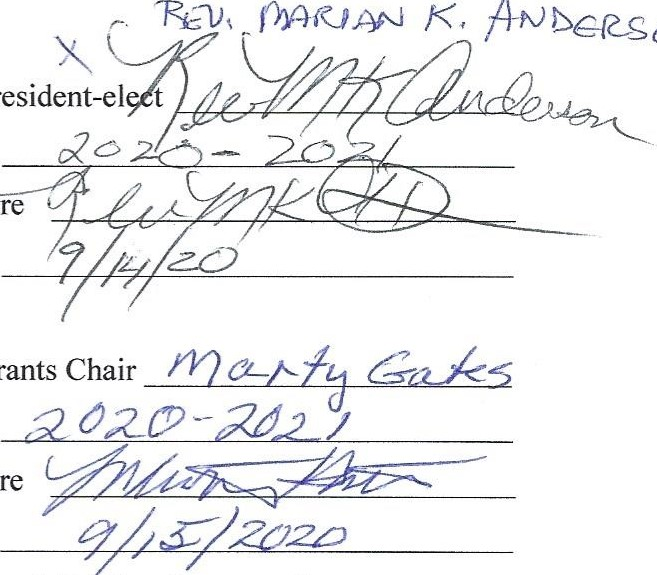 REV. MARIAN K. ANDERSO
X
resident-elect Rev MK Anderson
2020-2021
re Rev MK
9/14/20
rants Chair Marty Gates
2020-2021
re
9/15/2020